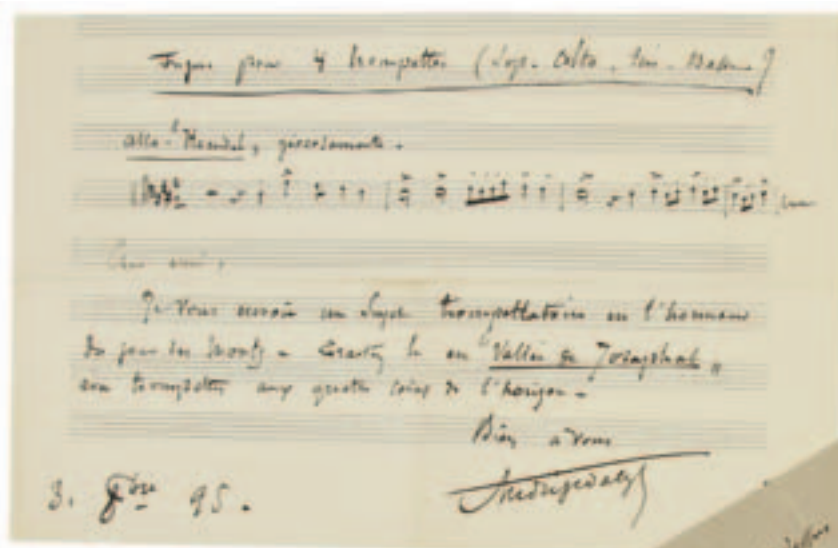 Fugue pour 4 trompettes (Sop. Alto. Ten. Basse.)
allo. Haendel, giocosamente.
Cher ami,
Je vous envoie un sujet trompettatoire en l'honneur
du jour des morts. Traitez le en "Vallée de Josaphat"
aux quatre coins de l'horizon.
Bien à vous
3. 9bre 95.